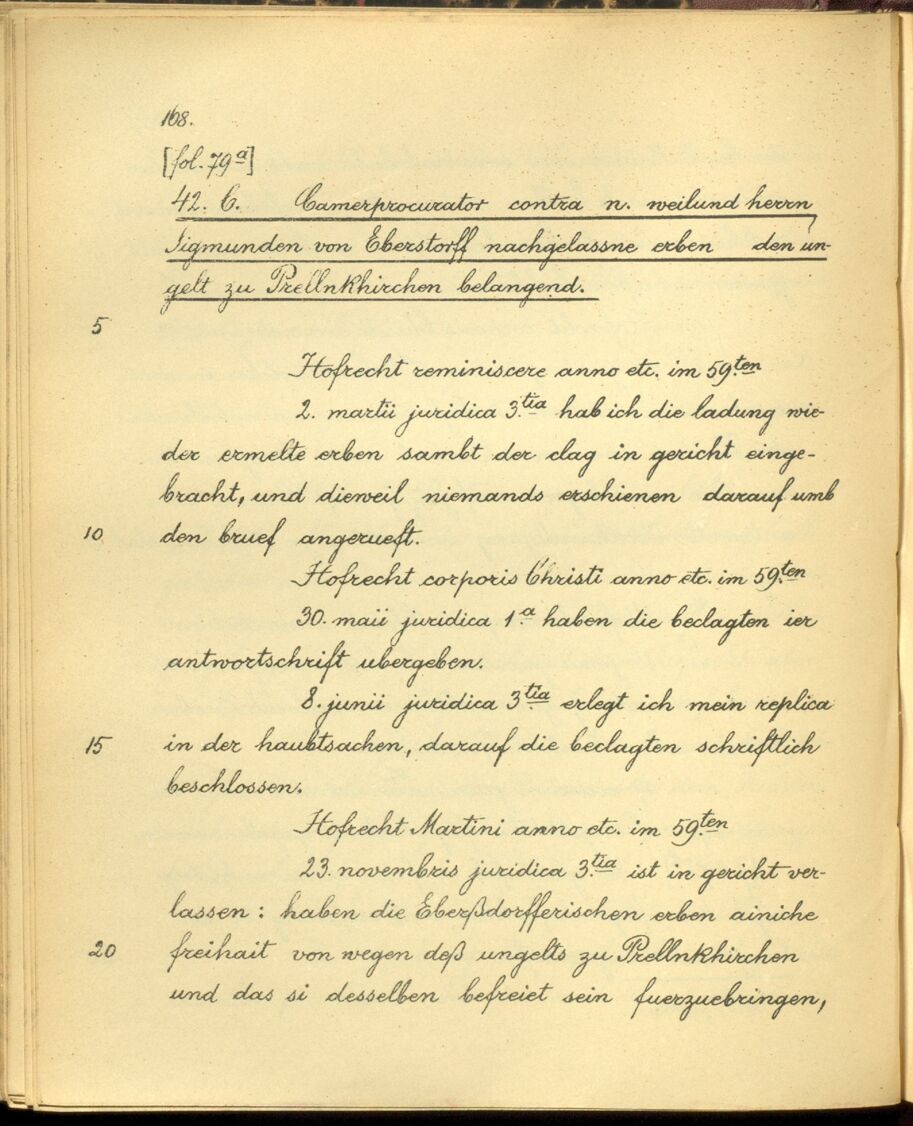 168.
[fol. 79a]
42. C. Camerprocurator contra n. weilund herrn
Sigmunden von Eberstorff nachgelassne erben den un-
gelt zu Prellnkhirchen belangend.
5
Hofrecht reminiscere anno etc. im 59.ten
2. martii juridica 3.tia hab ich die ladung wie-
der ermelte erben sambt der clag in gericht einge-
bracht, und dieweil niemands erschienen darauf umb
10 den bruef angerueft.
Hofrecht corporis Christi anno etc. im 59.ten
30. maii juridica 1.a haben die beclagten ier
antwortschrift ubergeben.
8. junii juridica 3tia erlegt ich mein replica
15 in der haubtsachen, darauf die beclagten schriftlich
beschlossen.
Hofrecht Martini anno etc. im 59.ten
23. novembris juridica 3.tia ist in gericht ver-
lassen: haben die Eberßdorfferischen erben ainiche
20 freihait von wegen deß ungelts zu Prellnkhirchen
und das si desselben befreiet sein fuerzuebringen,